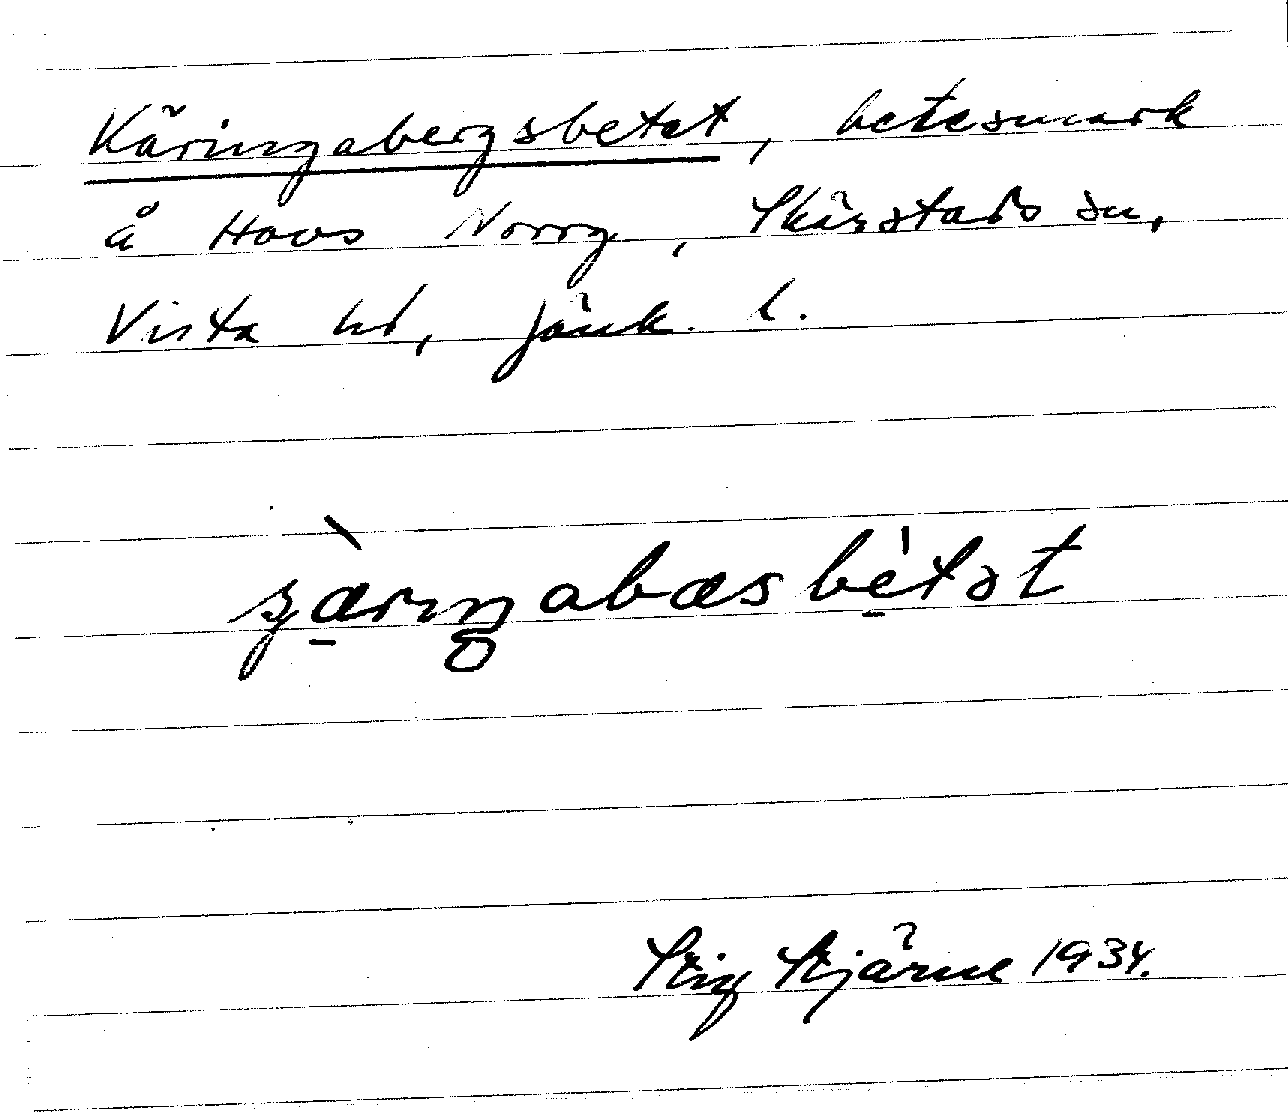 Käringabergsbetet, betesmark
å Hovs Norrg, Skärstads sn,
Vista hd, Jönk. l.
Stig Stjärne 1934.